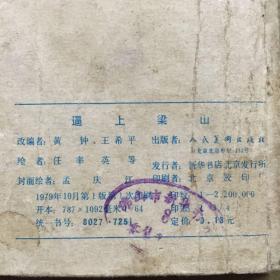 逼上梁山
改编者：黄钟、王希平 出版者：人民美术出版社
绘者：任率英等 发行者：新华书店北京发行所
封面绘者：孟庆江 印刷者：北京胶印厂
1979年10月第1版第1次印刷 印数：1—2,200,000
开本：787×1092毫米1/64 印张：
统一书号：8027·7281 定价：0.18元